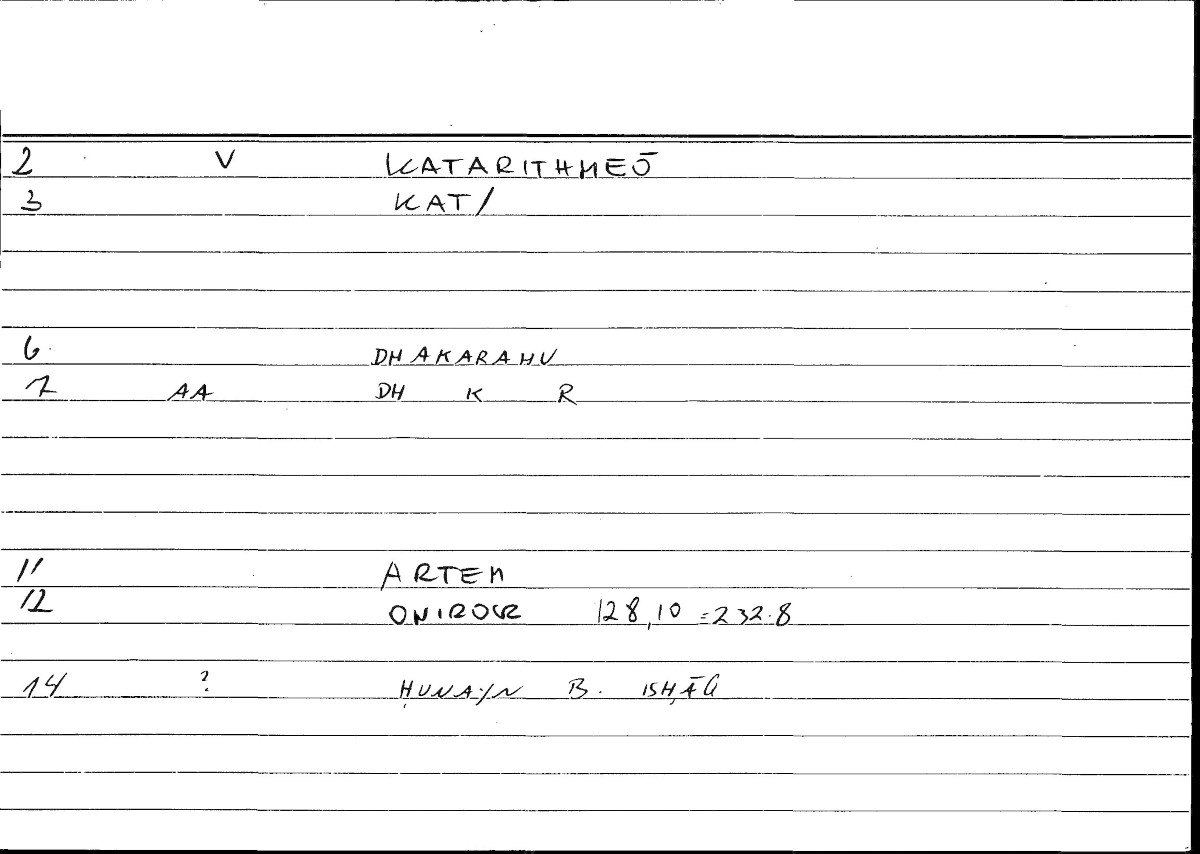 2 V KATARITHMEŌ
3 KAT/
6 DHAKARAHU
7 AA DH K R
11 ARTEM
12 ONIROCR 128,10 = 232.8
14 ? ḤUNAYN B. ISḤĀQ